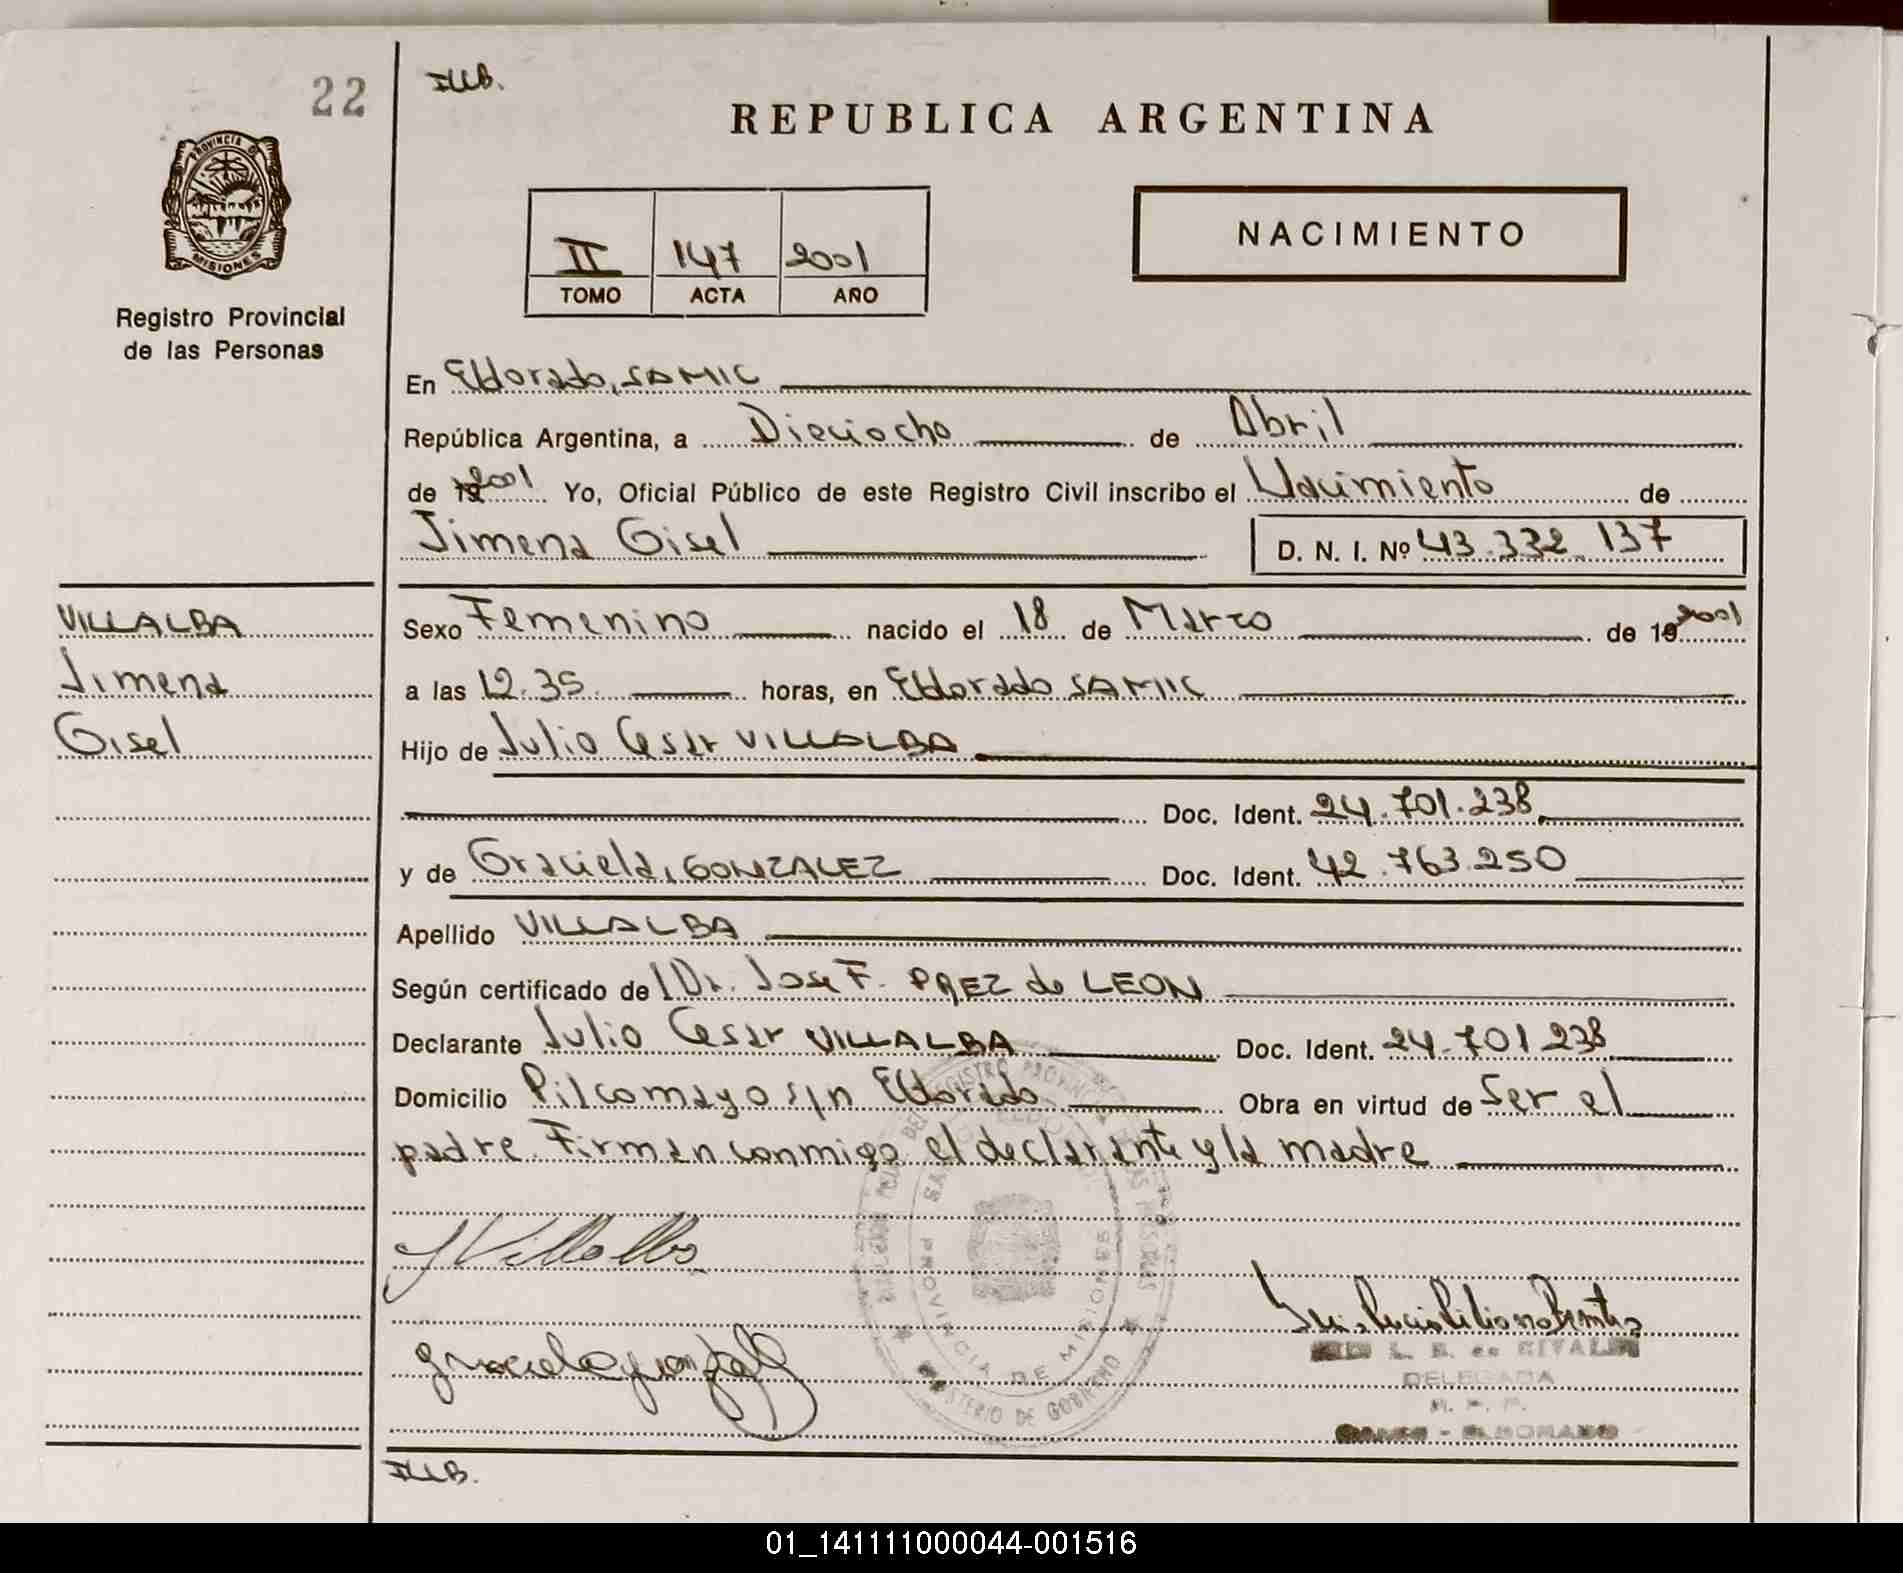 22
ILLB.
REPUBLICA ARGENTINA
PROVINCIA DE
MISIONES
Registro Provincial
de las Personas
II 147 2001
TOMO ACTA AÑO
NACIMIENTO
En Eldorado, SAMIC
República Argentina, a Dieciocho de Abril
de 19 2001 Yo, Oficial Público de este Registro Civil inscribo el Nacimiento de
Jimena Gisel D. N. I. Nº 43.332.137
VILLALBA
Jimena
Gisel
Sexo Femenino nacido el 18 de Marzo de 19 2001
a las 12.35. horas, en Eldorado SAMIC
Hijo de Julio Cesar VILLALBA
Doc. Ident. 24.701.238
y de Graciela, GONZALEZ Doc. Ident. 42.763.250
Apellido VILLALBA
Según certificado de Dr. Jose F. PAEZ de LEON
Declarante Julio Cesar VILLALBA Doc. Ident. 24.701.238
Domicilio Pilcomayo s/n Eldorado Obra en virtud de Ser el
padre. Firman conmigo el declarante y la madre
JVillalba
PROVINCIA DE MISIONES
MINISTERIO DE GOBIERNO
L. B. de RIVALDI
DELEGADA
R. P. P.
SAMIC - ELDORADO
ILLB.
01_141111000044-001516